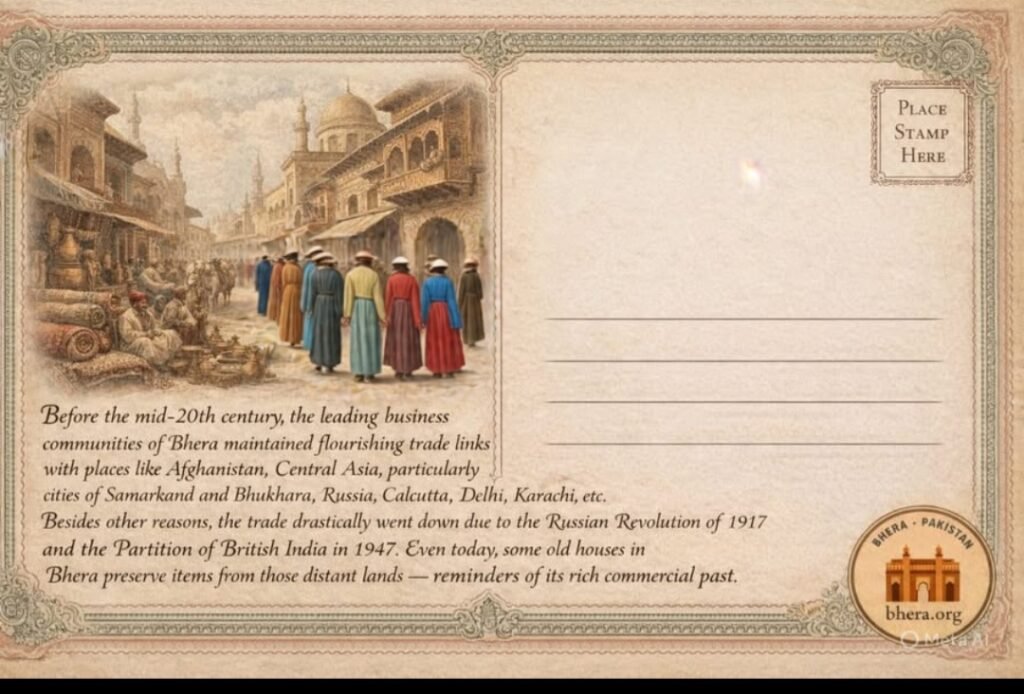 PLACE
STAMP
HERE
Before the mid-20th century, the leading business
communities of Bhera maintained flourishing trade links
with places like Afghanistan, Central Asia, particularly
cities of Samarkand and Bhukhara, Russia, Calcutta, Delhi, Karachi, etc.
Besides other reasons, the trade drastically went down due to the Russian Revolution of 1917
and the Partition of British India in 1947. Even today, some old houses in
Bhera preserve items from those distant lands — reminders of its rich commercial past.
BHERA · PAKISTAN
bhera.org
Meta AI